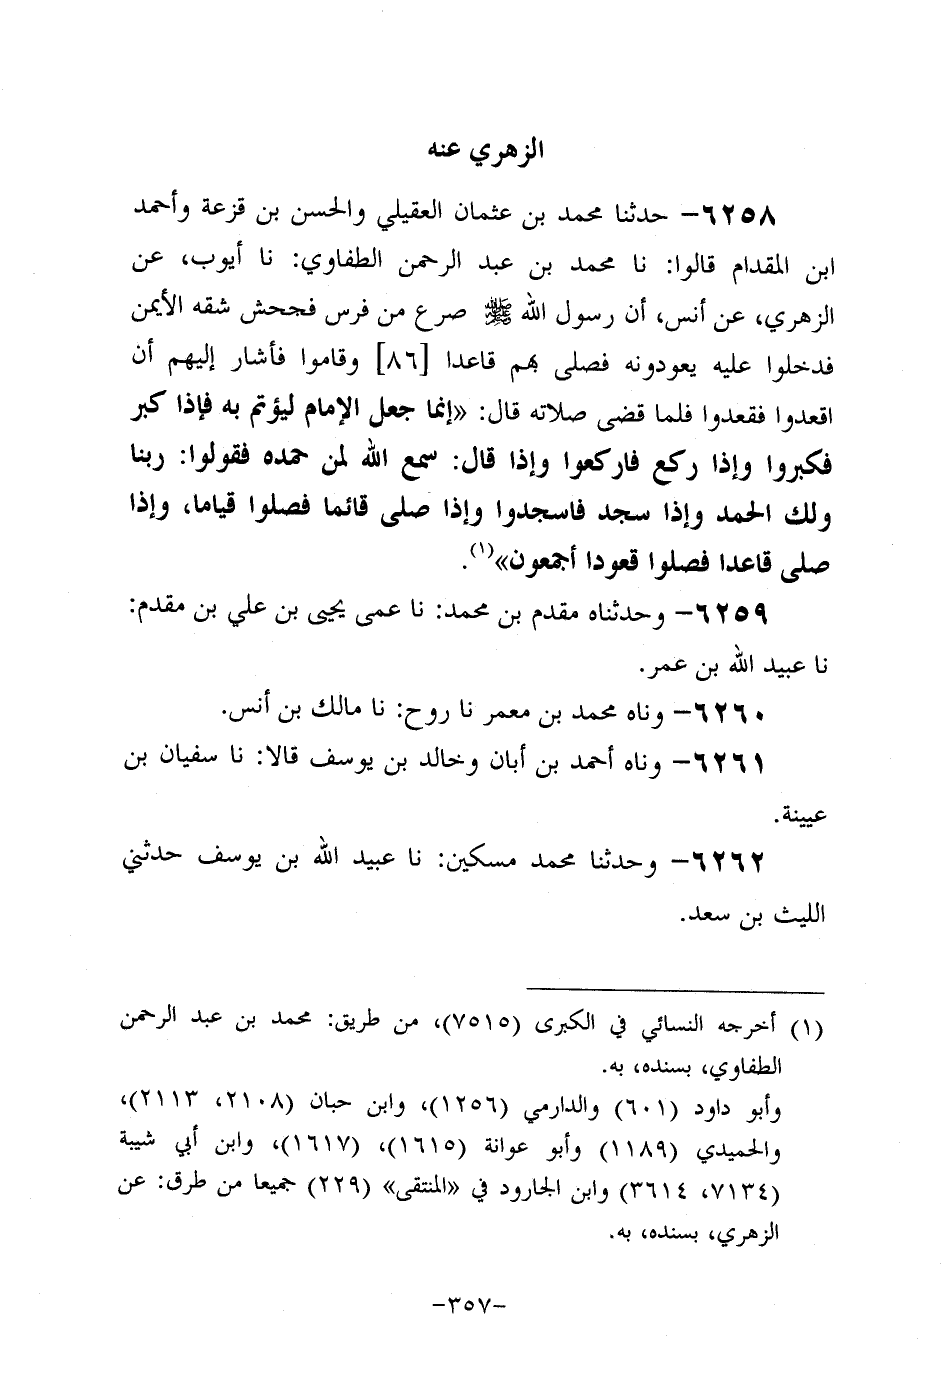 الزهري عنه
٦٢٥٨- حدثنا محمد بن عثمان العقيلي والحسن بن قزعة وأحمد
ابن المقدام قالوا: نا محمد بن عبد الرحمن الطفاوي: نا أيوب، عن
الزهري، عن أنس، أن رسول الله ﷺ صرع من فرس فجحش شقه الأيمن
فدخلوا عليه يعودونه فصلى بهم قاعدا [٨٦] وقاموا فأشار إليهم أن
اقعدوا فقعدوا فلما قضى صلاته قال: «إنما جعل الإمام ليؤتم به فإذا كبر
فكبروا وإذا ركع فاركعوا وإذا قال: سمع الله لمن حمده فقولوا: ربنا
ولك الحمد وإذا سجد فاسجدوا وإذا صلى قائما فصلوا قياما، وإذا
صلى قاعدا فصلوا قعودا أجمعون»(١).
٦٢٥٩- وحدثناه مقدم بن محمد: نا عمى يحيى بن علي بن مقدم:
نا عبيد الله بن عمر.
٦٢٦٠- وناه محمد بن معمر نا روح: نا مالك بن أنس.
٦٢٦١- وناه أحمد بن أبان وخالد بن يوسف قالا: نا سفيان بن
عيينة.
٦٢٦٢- وحدثنا محمد مسكين: نا عبيد الله بن يوسف حدثني
الليث بن سعد.
(١) أخرجه النسائي في الكبرى (٧٥١٥)، من طريق: محمد بن عبد الرحمن
الطفاوي، بسنده، به.
وأبو داود (٦٠١) والدارمي (١٢٥٦)، وابن حبان (٢١٠٨، ٢١١٣)،
والحميدي (١١٨٩) وأبو عوانة (١٦١٥)، (١٦١٧)، وابن أبي شيبة
(٧١٣٤، ٣٦١٤) وابن الجارود في «المنتقى» (٢٢٩) جميعا من طرق: عن
الزهري، بسنده، به.
-٣٥٧-